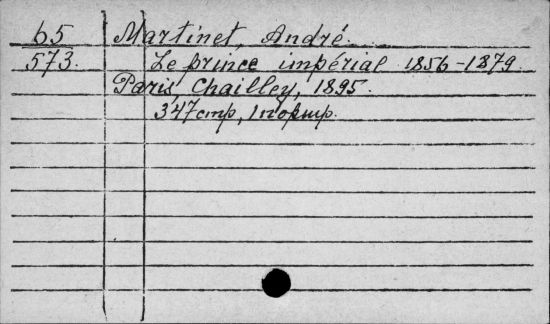 65 Martinet, André.
573. Le prince impérial 1856-1879.
Paris, Chailley, 1895.
347 cmp,